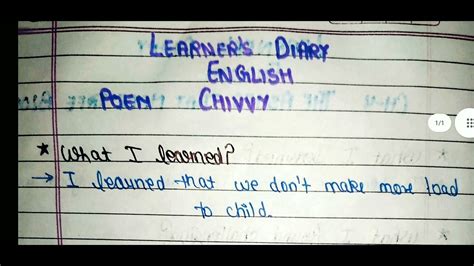 LEARNER'S DIARY
ENGLISH
POEM CHIVVY
* What I learned?
→ I learned that we don't make more load
to child.
1/1